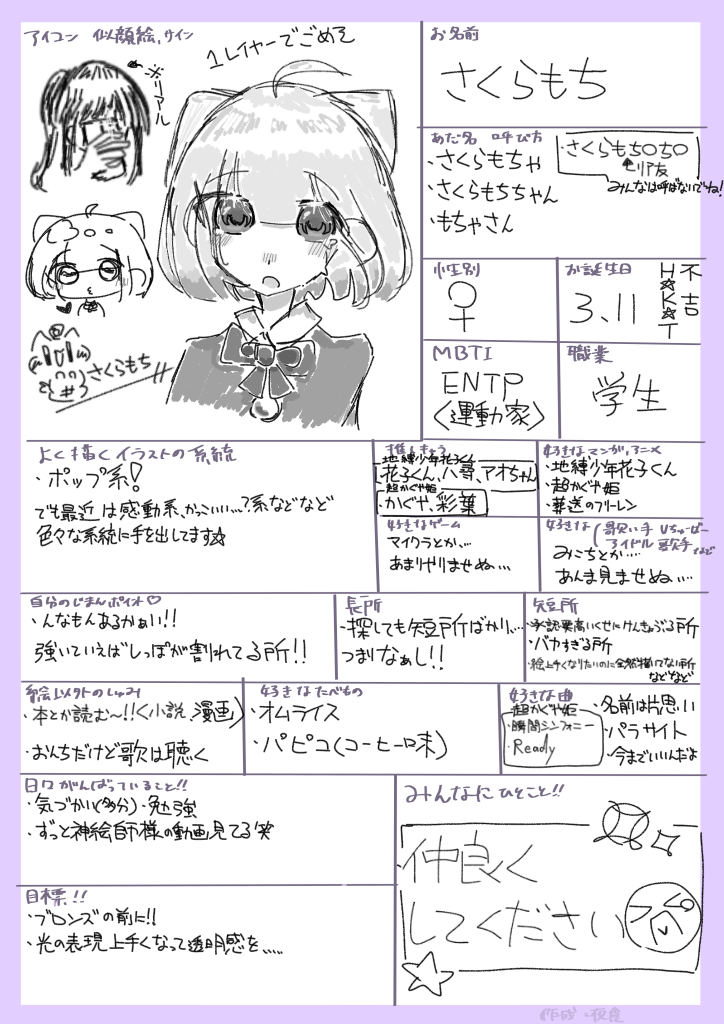 アイコン 似顔絵、サイン
1レイヤーでごめそ
※リアル
さくらもち
お名前
さくらもち
あだ名 呼び方
・さくらもちゃ
・さくらもちちゃん
・もちゃさん
・さくらもち〇ち〇
リア友
みんなは呼ばないでね!
性別
♀
お誕生日
3、11
不吉
H☆K☆T
MBTI
ENTP
〈運動家〉
職業
学生
よく描くイラストの系統
・ポップ系!
でも最近は感動系、かっこいい…?系などなど
色々な系統に手を出してます☆
推しきょう
地縛少年花子くん
花子くん、八尋、アオちゃん
超かぐや姫
・かぐや、彩葉
好きなマンガ、アニメ
・地縛少年花子くん
・超かぐや姫
・葬送のフリーレン
好きなゲーム
マイクラとか、…
あまりやりませぬ…
好きな(歌い手 Vちゅーばー
アイドル 歌手など
みこちとか…
あんま見ませぬ….
自分のじまんポイント♡
・んなもんあるかぁい!!
強いていえばしっぽが割れてる所!!
長所
・探しても短所ばかり….
つまりなぁし!!
短所
・承認欲高いくせにけんきょぶる所
・バカすぎる所
・絵上手くなりたいのに全然描いてない所
などなど
絵以外のしゅみ
・本とか読む〜!!〈小説、漫画〉
・おんちだけど歌は聴く
好きなたべもの
・オムライス
・パピコ(コーヒー口味)
好きな曲
超かぐや姫
・瞬間シンフォニー
・Ready
・名前は片思い
・パラサイト
・今までいいんだよ
日々がんばっていること!!
・気づかい(多分)・勉強
・ずっと神絵師様の動画見てる笑
みんなにひとこと!!
仲良く
してください
目標!!
・ブロンズの前に!!
・光の表現上手くなって透明感を…..
作成:夜食